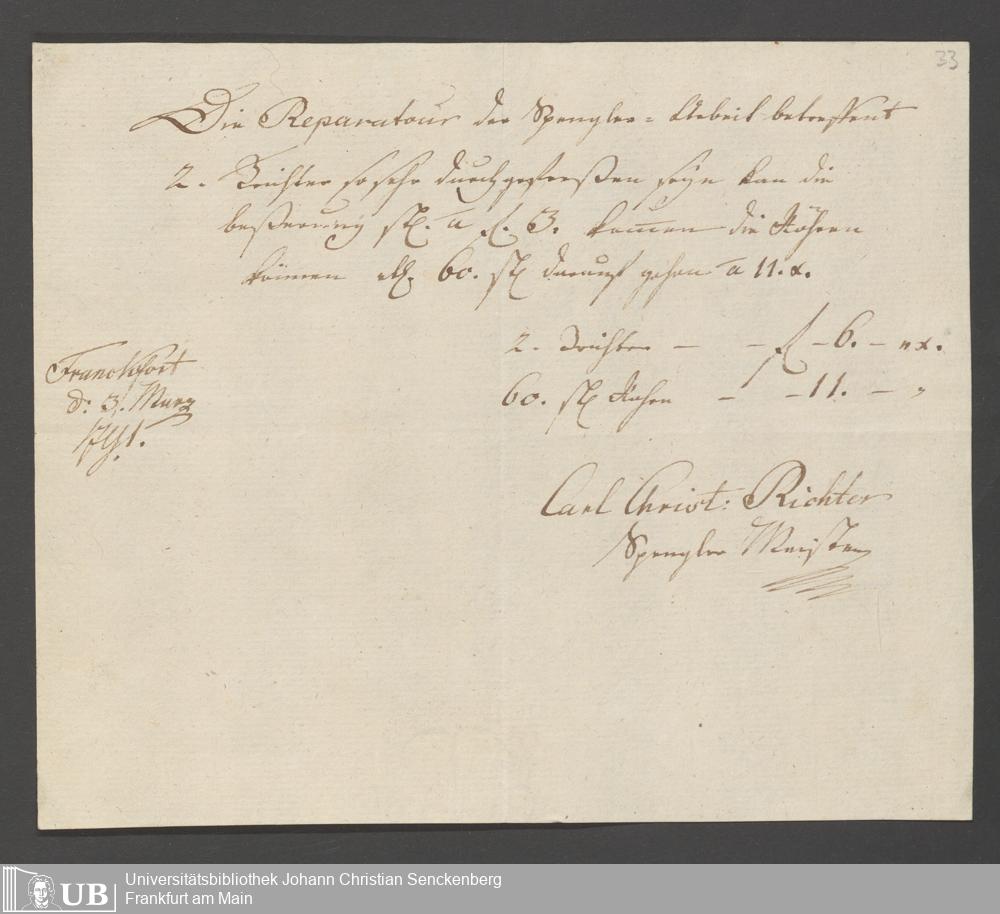 33
Die Reparatour der Spengler=Arbeit betreffent
2. Trichter so sehr durchgefreßen seyn kan die
beßerung st. a f. 3. kommen die Röhren
können etl. 60. st darauf gehen a 11. x.
2. Trichter — — f — 6. — " x.
60. st Röhren — — 11. — "
Franckfort
d: 3. Marz
1791.
Carl Christ: Richter
Spengler Meister
UB
Universitätsbibliothek Johann Christian Senckenberg
Frankfurt am Main